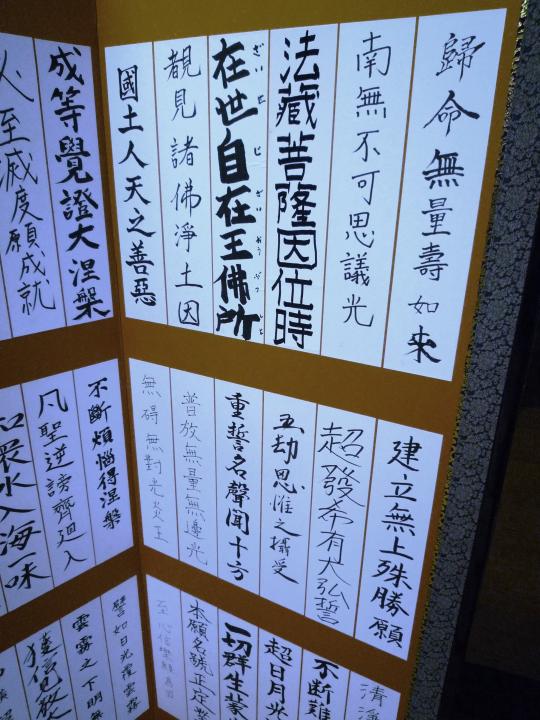 歸命無量壽如來
南無不可思議光
法藏菩薩因位時
在世自在王佛所
ざい せ じ ざい おう ぶつ
覩見諸佛淨土因
國土人天之善惡
建立無上殊勝願
超發希有大弘誓
五劫思惟之攝受
重誓名聲聞十方
普放無量無邊光
無碍無對光炎王
清淨
不断難
超日月光
一切群生蒙
本願名號正定業
至心信樂願為因
成等覺證大涅槃
必至滅度願成就
不斷煩惱得涅槃
凡聖逆謗齊廻入
如衆水入海一味
譬如日光覆雲霧
雲霧之下明無
獲信見敬